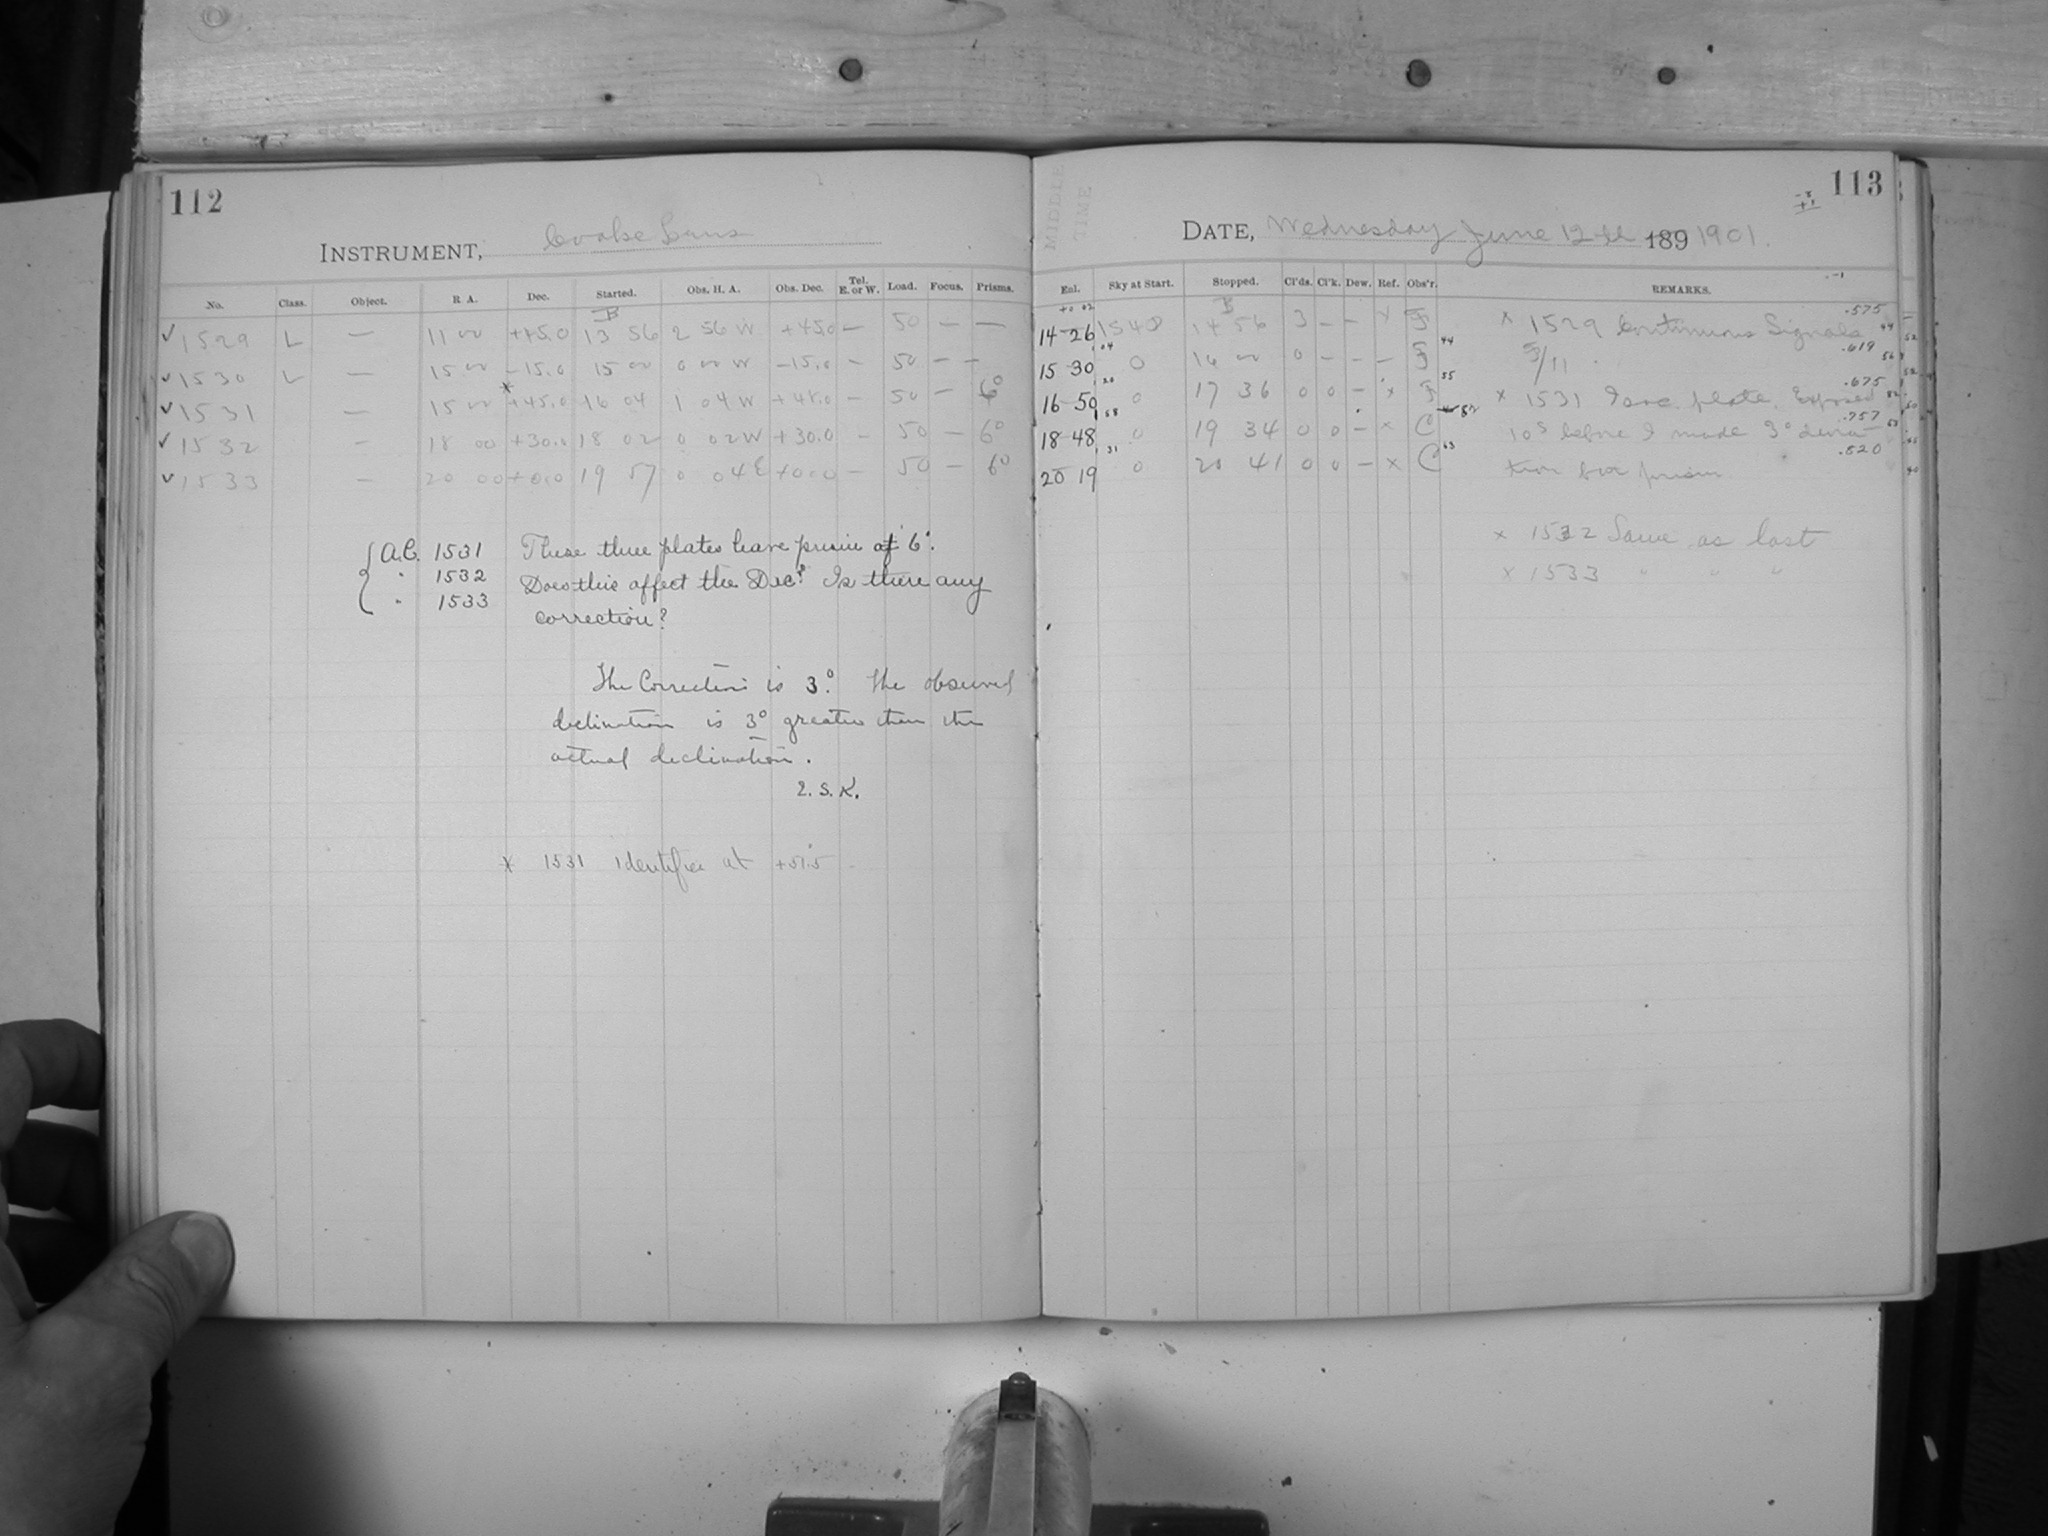 112
INSTRUMENT, Cooke Lens
No. Class. Object. R A. Dec. Started. Obs. H. A. Obs. Dec. Tel. E. or W. Load. Focus. Prisms.
B
✓ 1529 L — 11 00 +45.0 13 56 2 56 W +45.0 — 50 — —
✓ 1530 L — 15 00 -15.0 15 00 0 00 W -15.0 — 50 — —
✓ 1531 — 15 00 * +45.0 16 04 1 04 W +48.0 — 50 — 6°
✓ 1532 — 18 00 +30.0 18 02 0 02 W +30.0 — 50 — 6°
✓ 1533 — 20 00 +0.0 19 57 0 04 E +0.0 — 50 — 6°
{ A.C. 1531 These three plates have prism of 6°.
" 1532 Does this affect the Dec? Is there any
" 1533 correction?
The Correction is 3°. The observed
declination is 3° greater than the
actual declination.
E. S. K.
* 1531 Identifies at +51.5
MIDDLE
TIME
113
-3
+1
DATE, Wednesday June 12th 189 1901.
Enl. Sky at Start. Stopped. Cl'ds. Cl'k. Dew. Ref. Obs'r. REMARKS.
+0 02 B .575
14-26 1540 14 56 3 — — x F x 1529 Continuous Signals
15-30 04 0 16 00 0 — — — F 44 3/11 .619
16-50 20 0 17 36 0 0 — x F 55 x 1531 Iso. plate. Exposed .675
18-48 58 0 19 34 0 0 — x C 82 10s before I made 3° devia- .757
20 19 31 0 20 41 0 0 — x C 63 tion for prism .820
x 1532 Same as last
x 1533 " " "